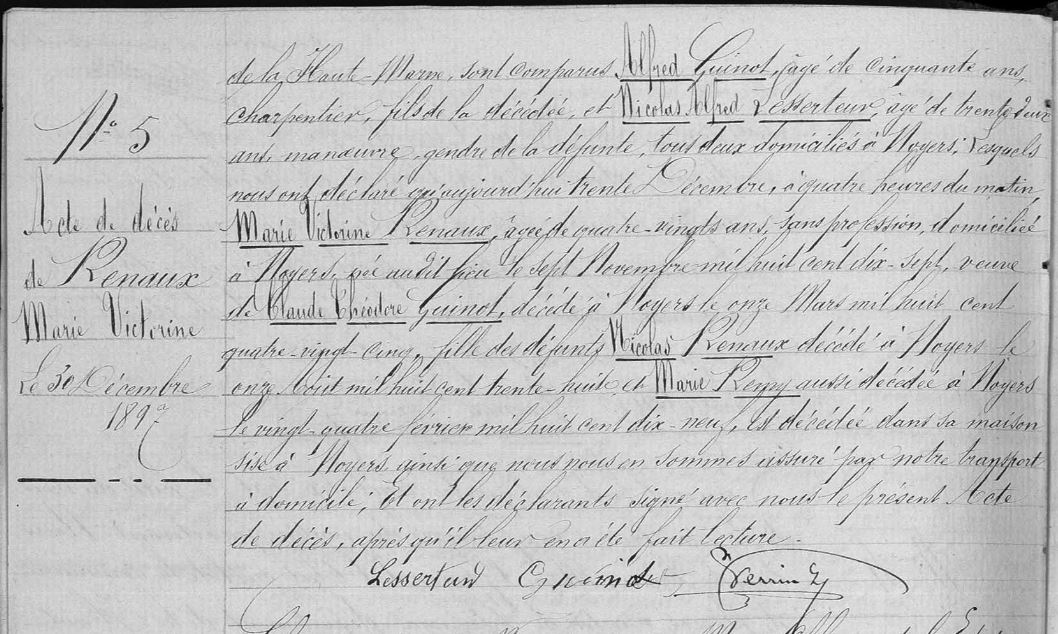 N° 5
Acte de décès
de Renaux
Marie Victorine
Le 30 Décembre
1897
de la Haute-Marne, sont comparus Alfred Guinot, âgé de cinquante ans,
charpentier, fils de la décédée, et Nicolas Alfred Lesserteur, âgé de trente-deux
ans, manœuvre, gendre de la défunte, tous deux domiciliés à Noyers; Lesquels
nous ont déclaré qu'aujourd'hui trente Décembre, à quatre heures du matin,
Marie Victorine Renaux, âgée de quatre-vingts ans, sans profession, domiciliée
à Noyers, née audit lieu le sept Novembre mil huit cent dix-sept, veuve
de Claude Théodore Guinot, décédé à Noyers le onze Mars mil huit cent
quatre-vingt-cinq, fille des défunts Nicolas Renaux décédé à Noyers le
onze Août mil huit cent trente-huit, et Marie Remy aussi décédée à Noyers
le vingt-quatre février mil huit cent dix-neuf, est décédée dans sa maison
sise à Noyers, ainsi que nous nous en sommes assuré par notre transport
à domicile; Et ont les déclarants signé avec nous le présent Acte
de décès, après qu'il leur en a été fait lecture.
Lesserteur Guinot Perrin